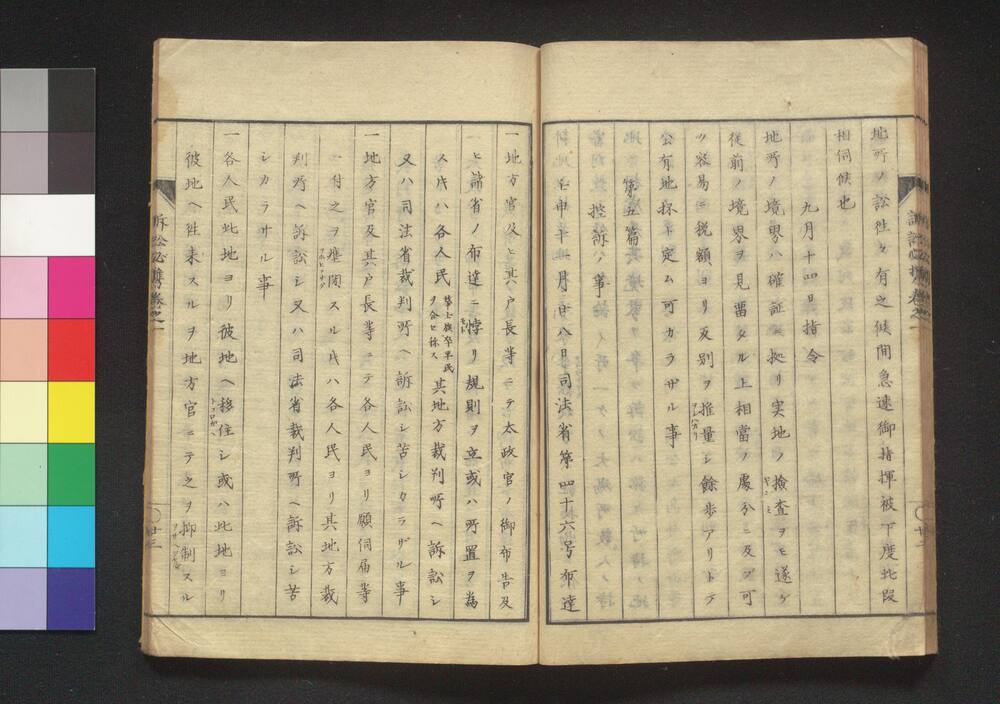 地所ノ訟往々有之候間急速御指揮被下度此段
相伺候也
九月十四日指令
地所ノ境界ハ確証ニ拠リ実地ノ撿査ヲモ遂ゲ
従前ノ境界ヲ見留タル上相當ノ處分ニ及ブ可
ツ容易ニ税額ヨリ反別ヲ推量シ餘歩アリトテ
公有地抔ト定ム可カラザル事
第五篇
控訴ノ事
壬申十一月廿八日司法省第四十六号布達
一地方官及ヒ其戸長等ニテ太政官ノ御布告及
ヒ諸省ノ布達ニ悖リ規則ヲ立或ハ所置ヲ為
ス片ハ各人民華士族卒平民ヲ合セ称ス其地方裁判所ヘ訴訟シ
又ハ司法省裁判所ヘ訴訟シ苦シカラザル事
一地方官及其戸長等ニテ各人民ヨリ願伺届等
ニ付之ヲ壅閉スル片ハ各人民ヨリ其地方裁
判所ヘ訴訟シ又ハ司法省裁判所ヘ訴訟シ苦
シカラサル事
一各人民此地ヨリ彼地ヘ移住シ或ハ此地ヨリ
彼地ヘ往来スルヲ地方官ニテ之ヲ抑制スル
訴訟必携巻之一
廿三